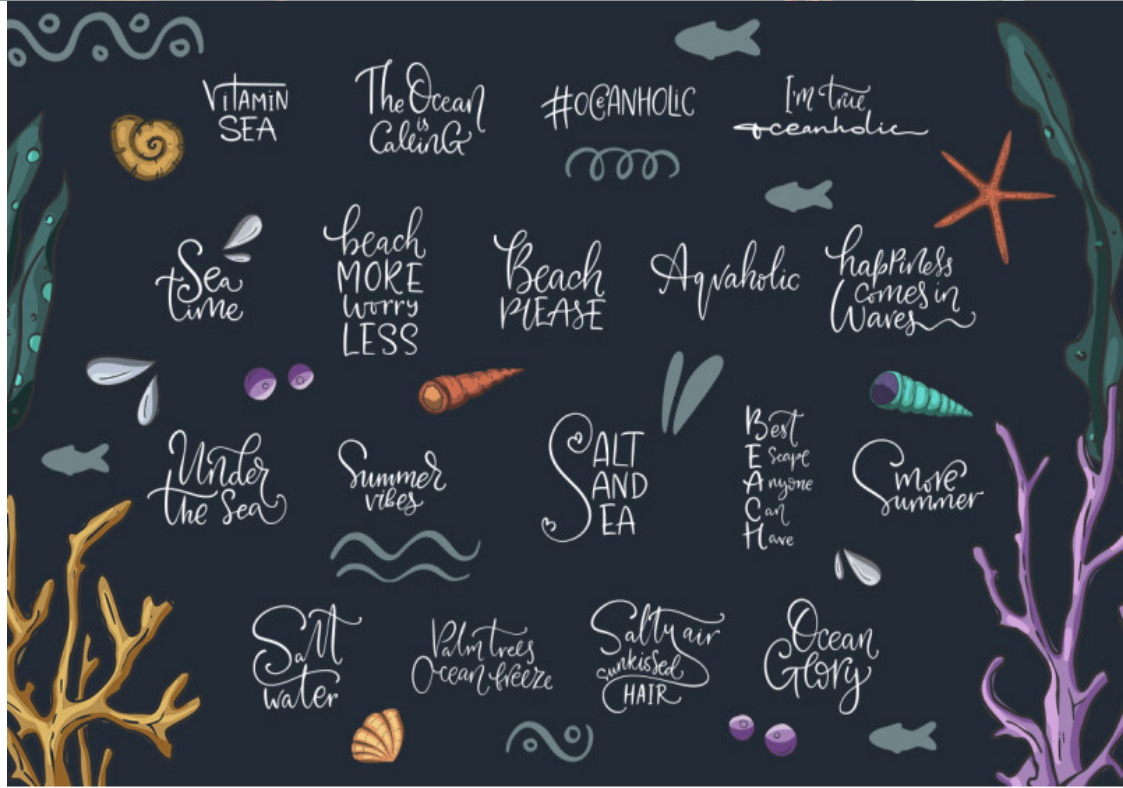 VITAMIN
SEA
The Ocean
is
CalliNG
#OCEANHOLIC
I'm true
oceanholic
Sea
time
beach
MORE
worry
LESS
Beach
PLEASE
Aquaholic
happiness
comes in
Waves
Under
the Sea
Summer
vibes
SALT
AND
SEA
Best
Escape
Anyone
Can
Have
Smore
Summer
Salt
water
Palm trees
Ocean breeze
Salty air
sunkissed
HAIR
Ocean
Glory